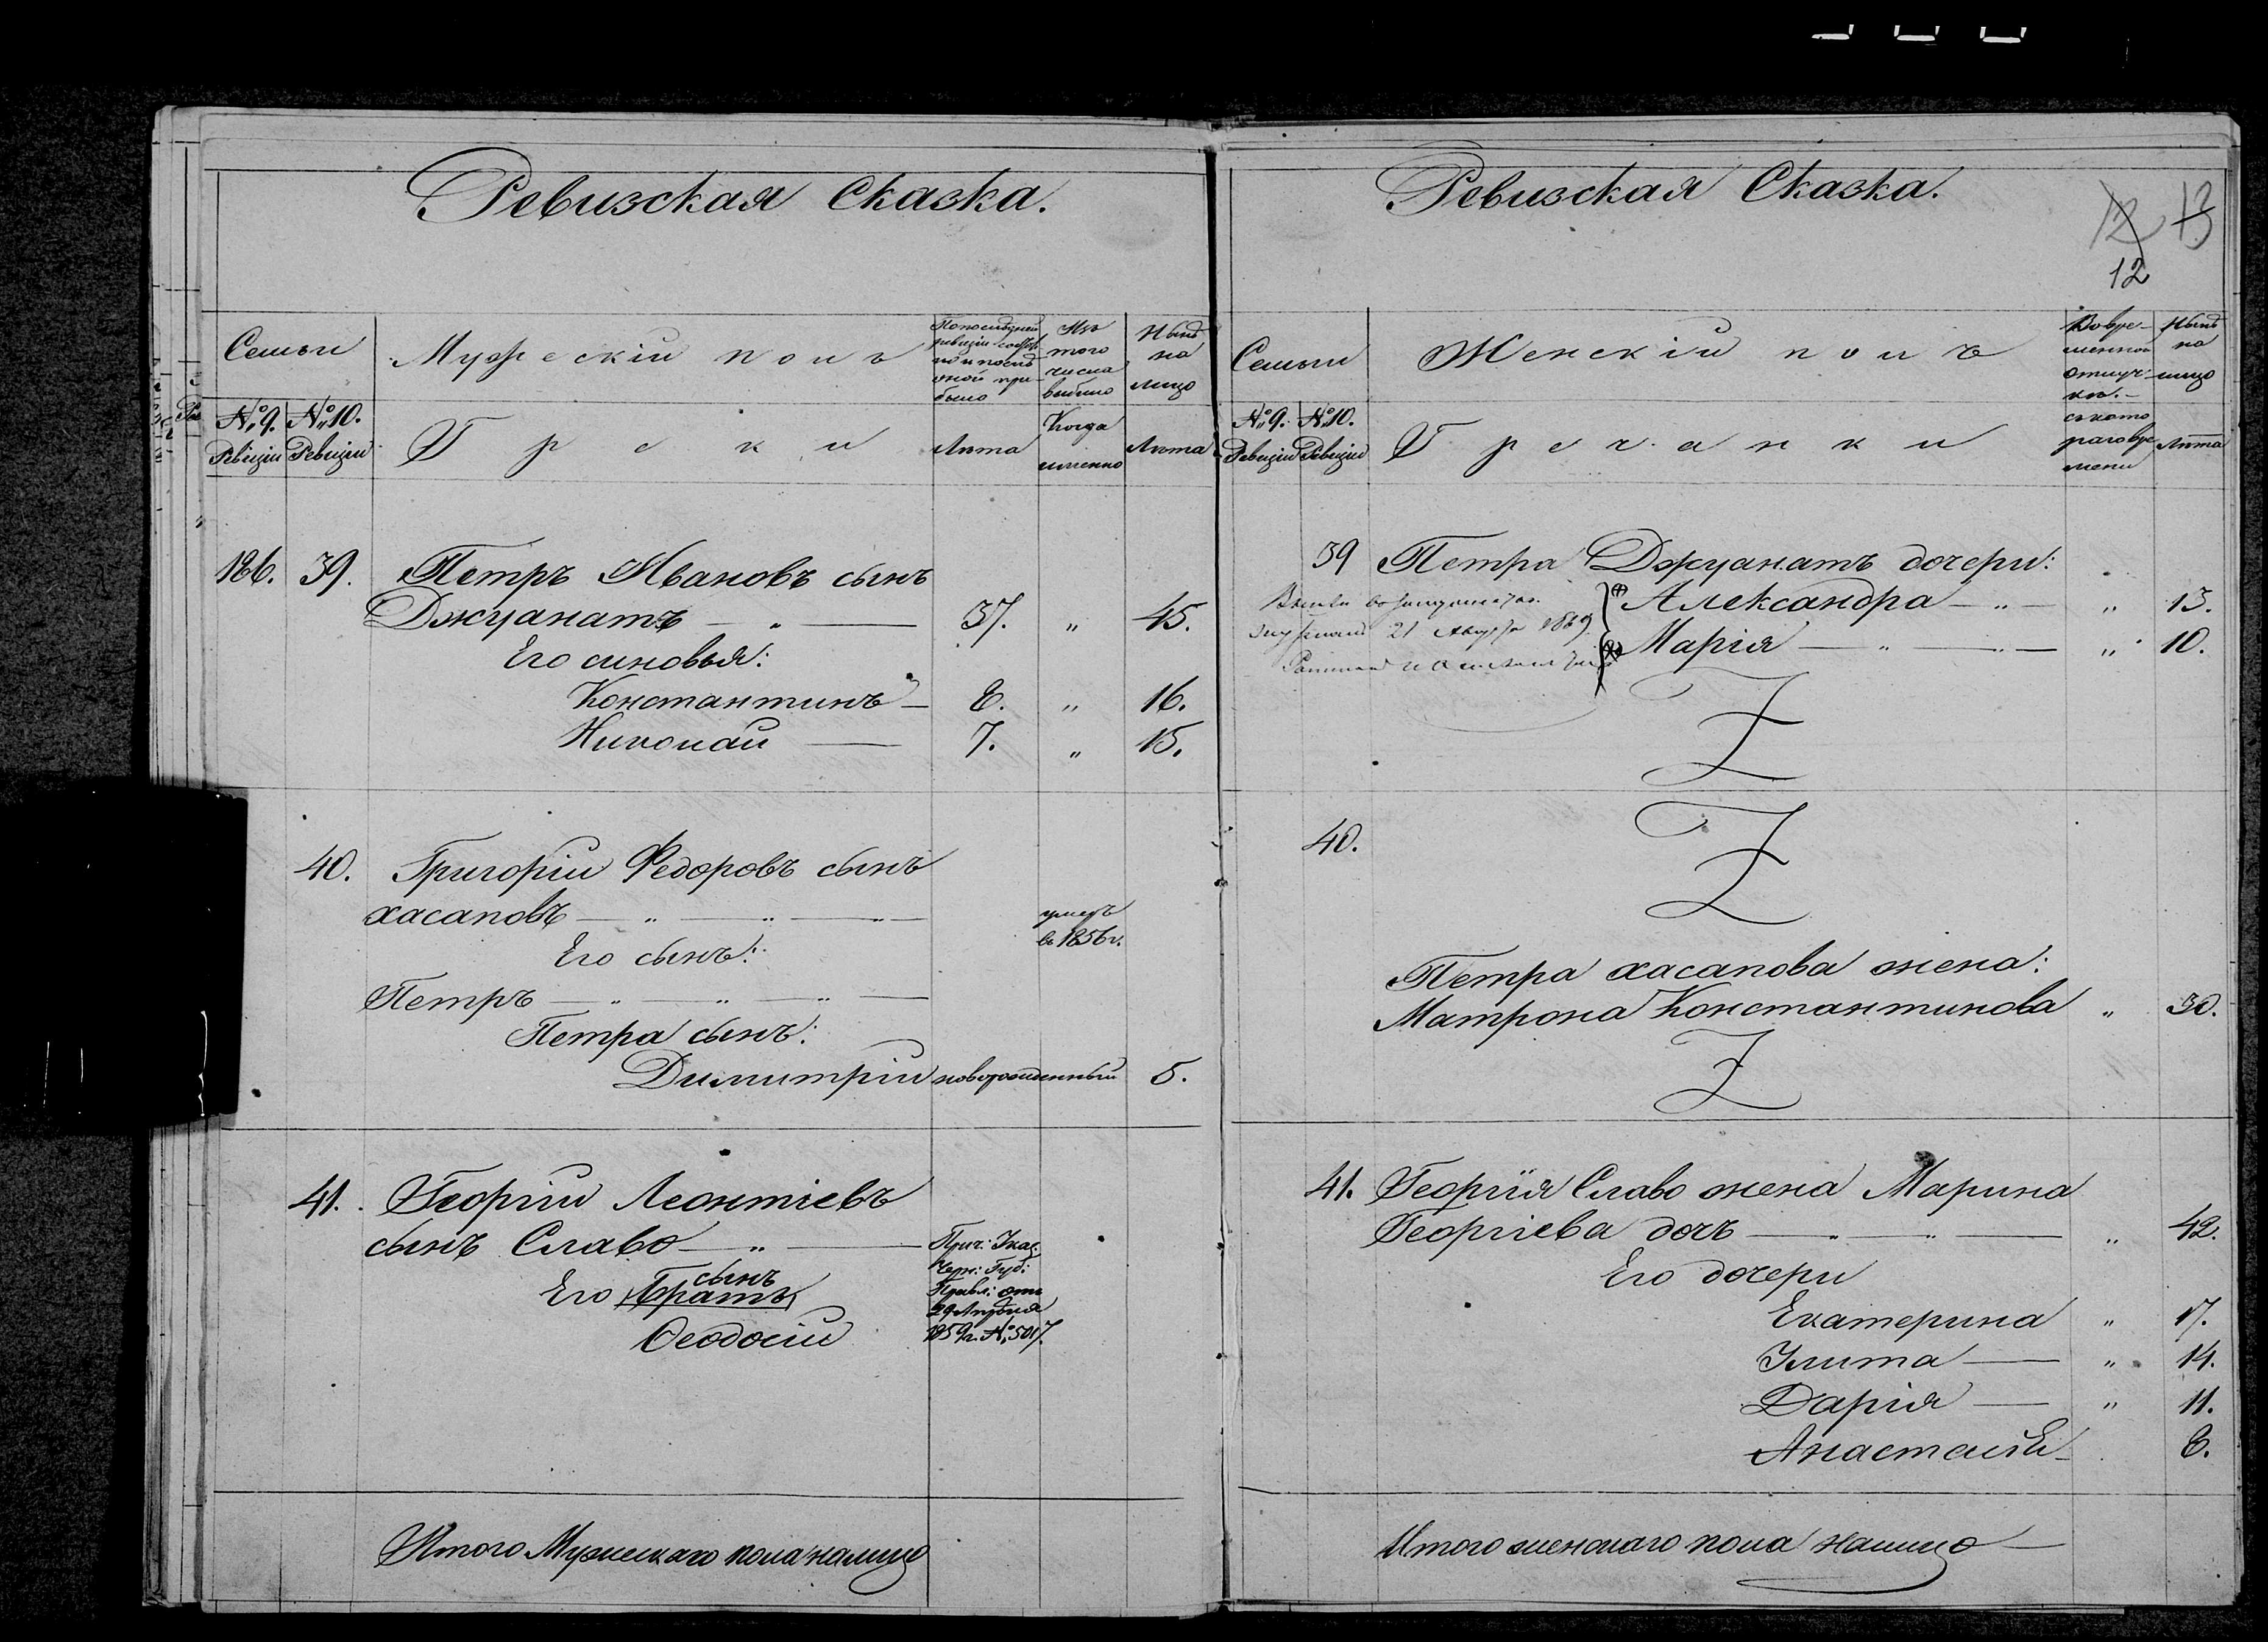 Ревизская Сказка.
Семьи
Мужескій полъ
По последней ревизіи состояло и после оной прибыло
Изъ того числа выбыло
Нынѣ на лицо
№ 9. Ревизіи
№ 10. Ревизіи
Греки
Лѣта
Когда именно
Лѣта
186. 39. Петръ Ивановъ сынъ
Джуанатъ — „ — 37. „ 45.
Его синовья:
Константинъ — 8. „ 16.
Николай — 7. „ 15.
40. Григорій Федоровъ сынъ
Хасаповъ — „ — „ — „ — умеръ
въ 1856 г.
Его сынъ:
Петръ — „ — „ — „ —
Петра сынъ:
Димитрій новорожденный 5.
41. Георгій Леонтіевъ
сынъ Славо — „ — Прич: Указ:
Черн: Губ:
сынъ
Его Братъ Правл: отъ
29 Апрѣля
Феодосій 1859 г. № 5017.
Итого Мужескаго пола налицо
Ревизская Сказка.
12 13
12
Семьи
Женскій полъ
Во временной отлучкѣ.
Нынѣ на лицо
№ 9. Ревизіи
№ 10. Ревизіи
Гречанки
съ котораго времени
Лѣта
39 Петра Джуанатъ дочери:
Александра — „ — „ 13.
21 Августа 1869
Марія — „ — „ — „ 10.
Z
40. Z
Петра Хасапова жена:
Матрона Константинова „ 30.
Z
41. Георгія Славо жена Марина
Георгіева дочь — „ — „ — „ 42.
Его дочери
Екатерина „ 17.
Улита — „ 14.
Дарія — „ 11.
Анастасія — 8.
Итого женскаго пола налицо —